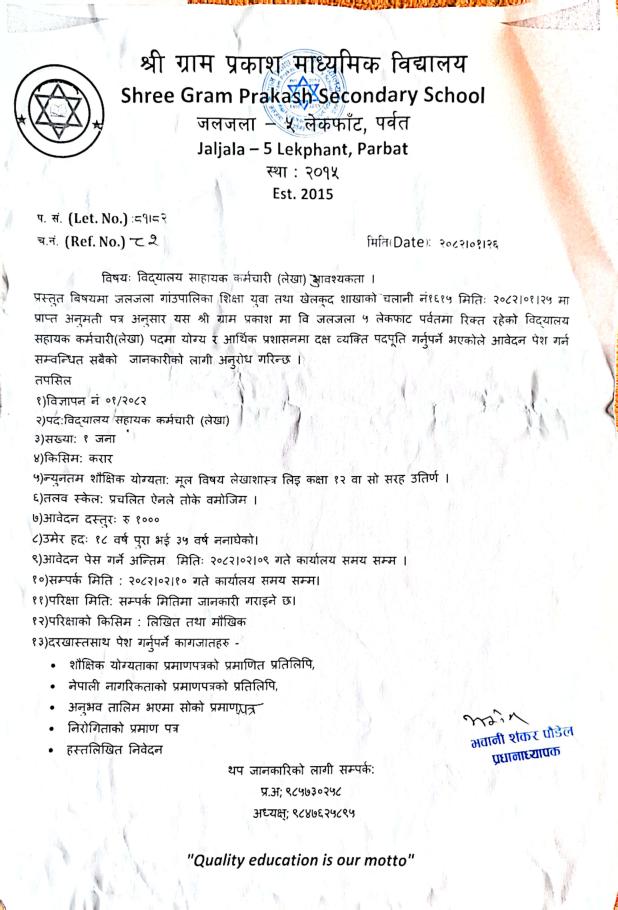 श्री ग्राम प्रकाश माध्यमिक विद्यालय
Shree Gram Prakash Secondary School
जलजला – ५ लेकफाँट, पर्वत
Jaljala – 5 Lekphant, Parbat
स्था : २०१५
Est. 2015
प. सं. (Let. No.) :८१।८२
च.नं. (Ref. No.) ८२
मिति(Date): २०८२।०१।२६
विषयः विद्यालय सहायक कर्मचारी (लेखा) आवश्यकता ।
प्रस्तुत बिषयमा जलजला गांउपालिका शिक्षा युवा तथा खेलकूद शाखाको चलानी नं१६१५ मितिः २०८२।०१।२५ मा
प्राप्त अनुमती पत्र अनुसार यस श्री ग्राम प्रकाश मा वि जलजला ५ लेकफाट पर्वतमा रिक्त रहेको विद्यालय
सहायक कर्मचारी(लेखा) पदमा योग्य र आर्थिक प्रशासनमा दक्ष व्यक्ति पदपूति गर्नुपर्ने भएकोले आवेदन पेश गर्न
सम्वन्धित सबैको जानकारीको लागी अनुरोध गरिन्छ ।
तपसिल
१)विज्ञापन नं ०१/२०८२
२)पदःविद्यालय सहायक कर्मचारी (लेखा)
३)सख्याः १ जना
४)किसिमः करार
५)न्युनतम शौक्षिक योग्यताः मूल विषय लेखाशास्त्र लिइ कक्षा १२ वा सो सरह उतिर्ण ।
६)तलव स्केलः प्रचलित ऐनले तोके वमोजिम ।
७)आवेदन दस्तुरः रु १०००
८)उमेर हदः १८ वर्ष पुरा भई ३५ वर्ष ननाघेको।
९)आवेदन पेस गर्ने अन्तिम मितिः २०८२।०२।०९ गते कार्यालय समय सम्म ।
१०)सम्पर्क मिति : २०८२।०२।१० गते कार्यालय समय सम्म।
११)परिक्षा मितिः सम्पर्क मितिमा जानकारी गराइने छ।
१२)परिक्षाको किसिम : लिखित तथा मौखिक
१३)दरखास्तसाथ पेश गर्नुपर्ने कागजातहरु -
• शौक्षिक योग्यताका प्रमाणपत्रको प्रमाणित प्रतिलिपि,
• नेपाली नागरिकताको प्रमाणपत्रको प्रतिलिपि,
• अनुभव तालिम भएमा सोको प्रमाणपत्र
• निरोगिताको प्रमाण पत्र
• हस्तलिखित निवेदन
भवानी शंकर पौडेल
प्रधानाध्यापक
थप जानकारिको लागी सम्पर्क:
प्र.अ; ९८५७३०२५८
अध्यक्ष; ९८४७६२५८९५
"Quality education is our motto"